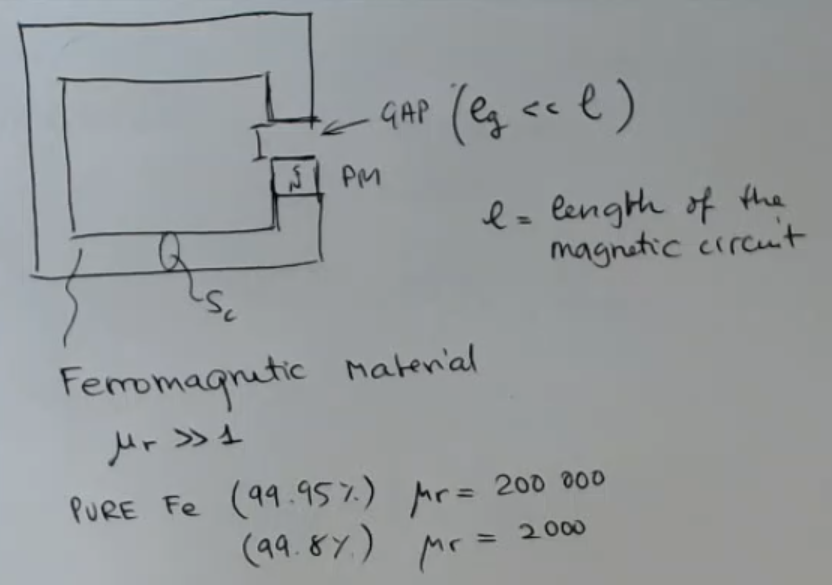 GAP (lg << l)
S
N
PM
l = length of the
magnetic circuit
Sc
Ferromagnetic material
μr >> 1
PURE Fe (99.95%) μr = 200 000
(99.8%) μr = 2000